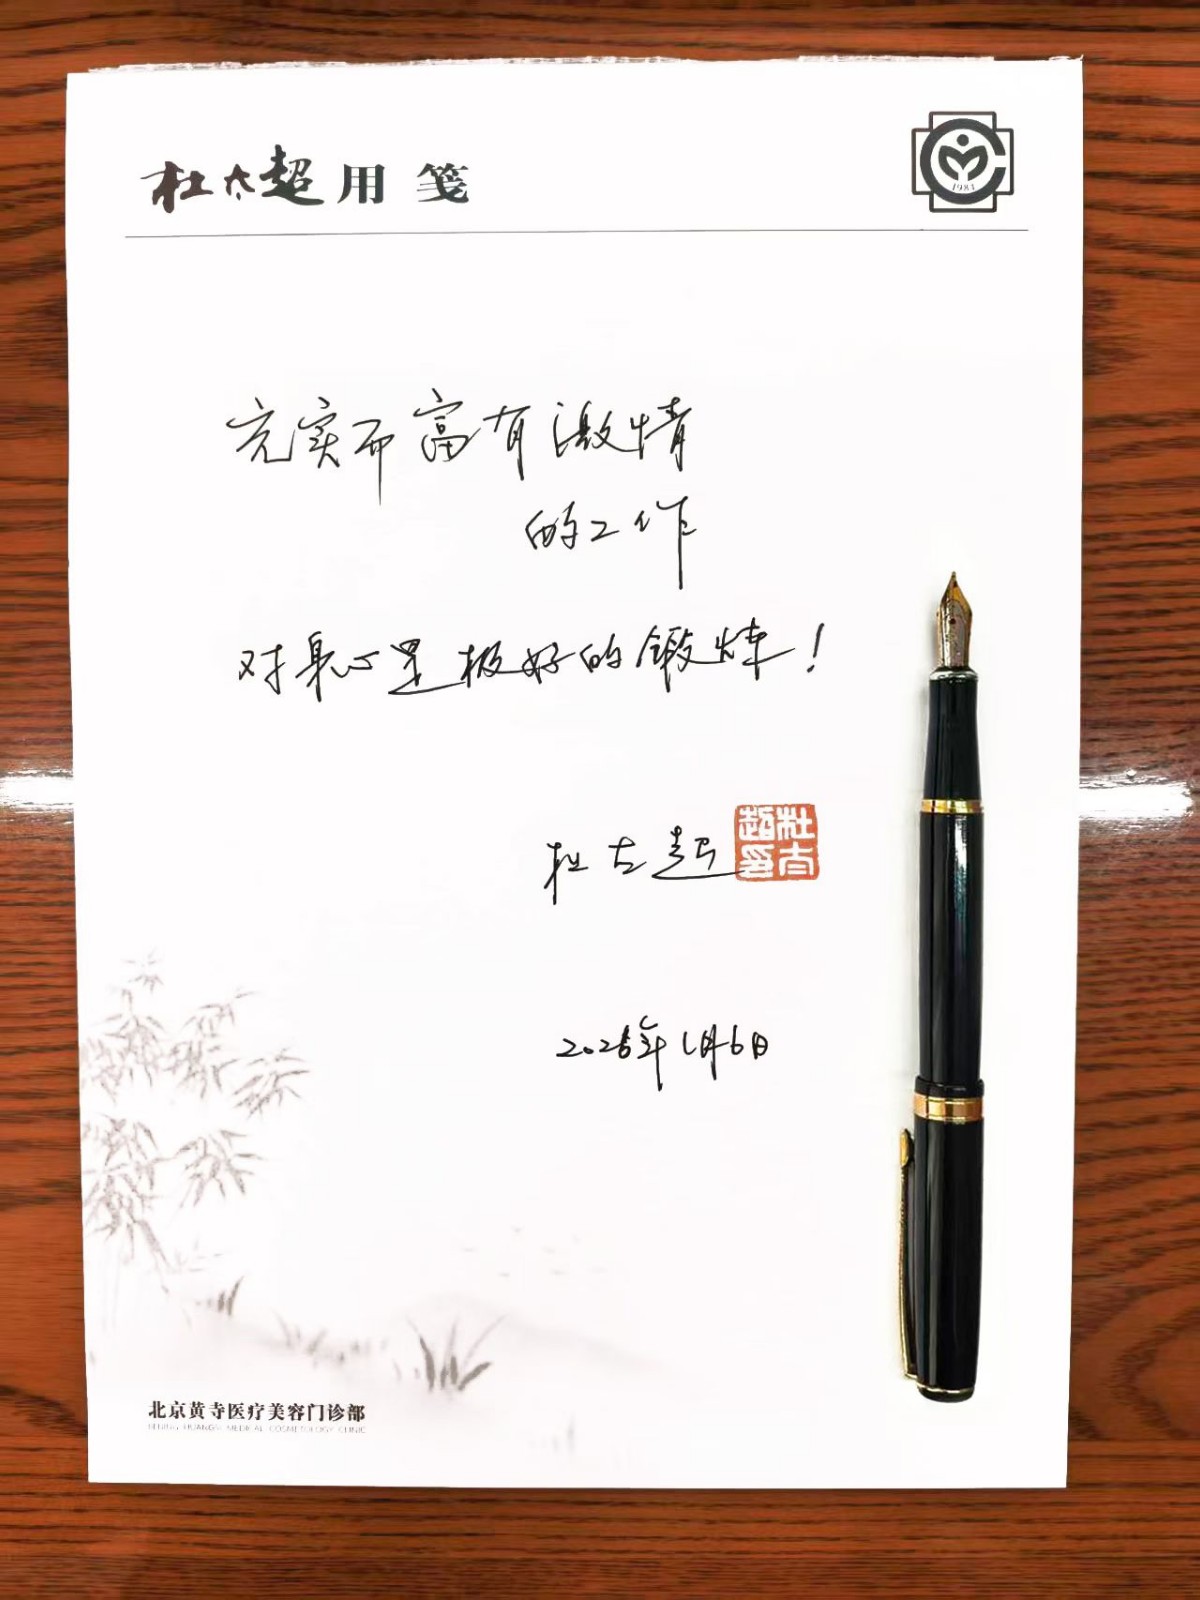 杜太超用笺
1984
充实而富有激情
的工作
对身心是极好的锻炼！
杜太超
杜太超印
2026年1月6日
北京黄寺医疗美容门诊部
BEIJING HUANGSI MEDICAL COSMETOLOGY CLINIC